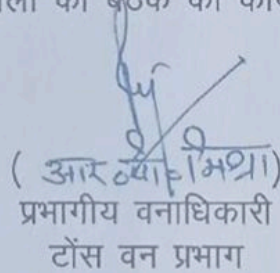 की बैठक की
( आर० पी० मिश्रा)
प्रभागीय वनाधिकारी
टोंस वन प्रभाग